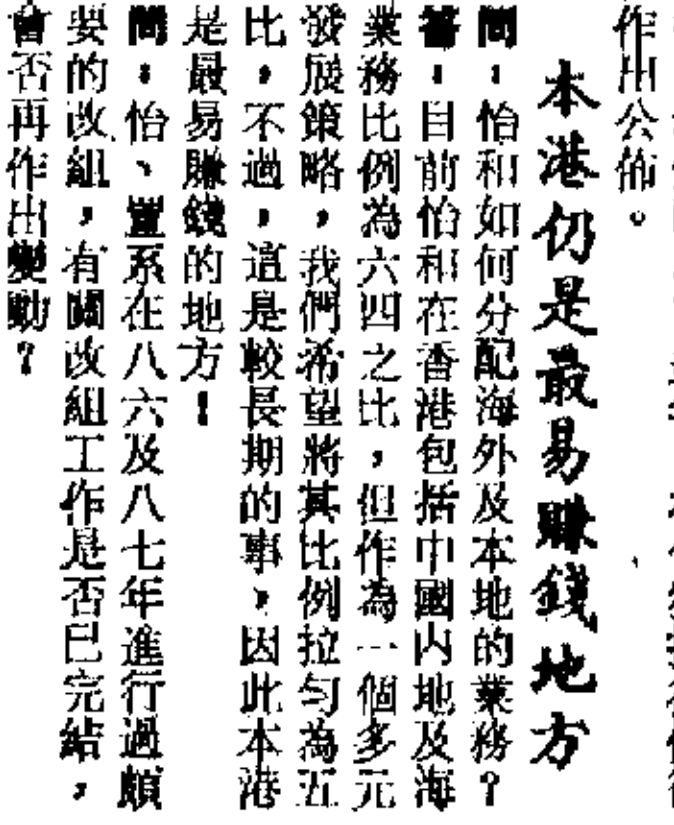 作出公佈。
本港仍是最易賺錢地方
問：怡和如何分配海外及本地的業務？
答：目前怡和在香港包括中國內地及海
業務比例為六四之比，但作為一個多元
發展策略，我們希望將其比例拉勻為五
比，不過，這是較長期的事，因此本港
是最易賺錢的地方！
問：怡、置系在八六及八七年進行過頗
要的改組，有關改組工作是否已完結，
會否再作出變動？